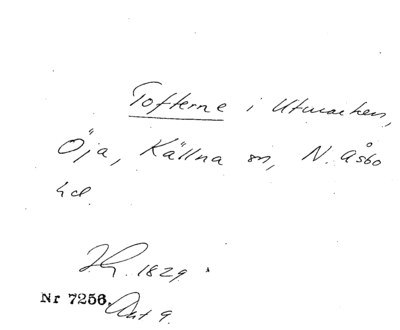 Tofterne i Utmarken,
Öja, Källna sn, N. Åsbo
hd.
1829
Nr 7256. Akt 9.